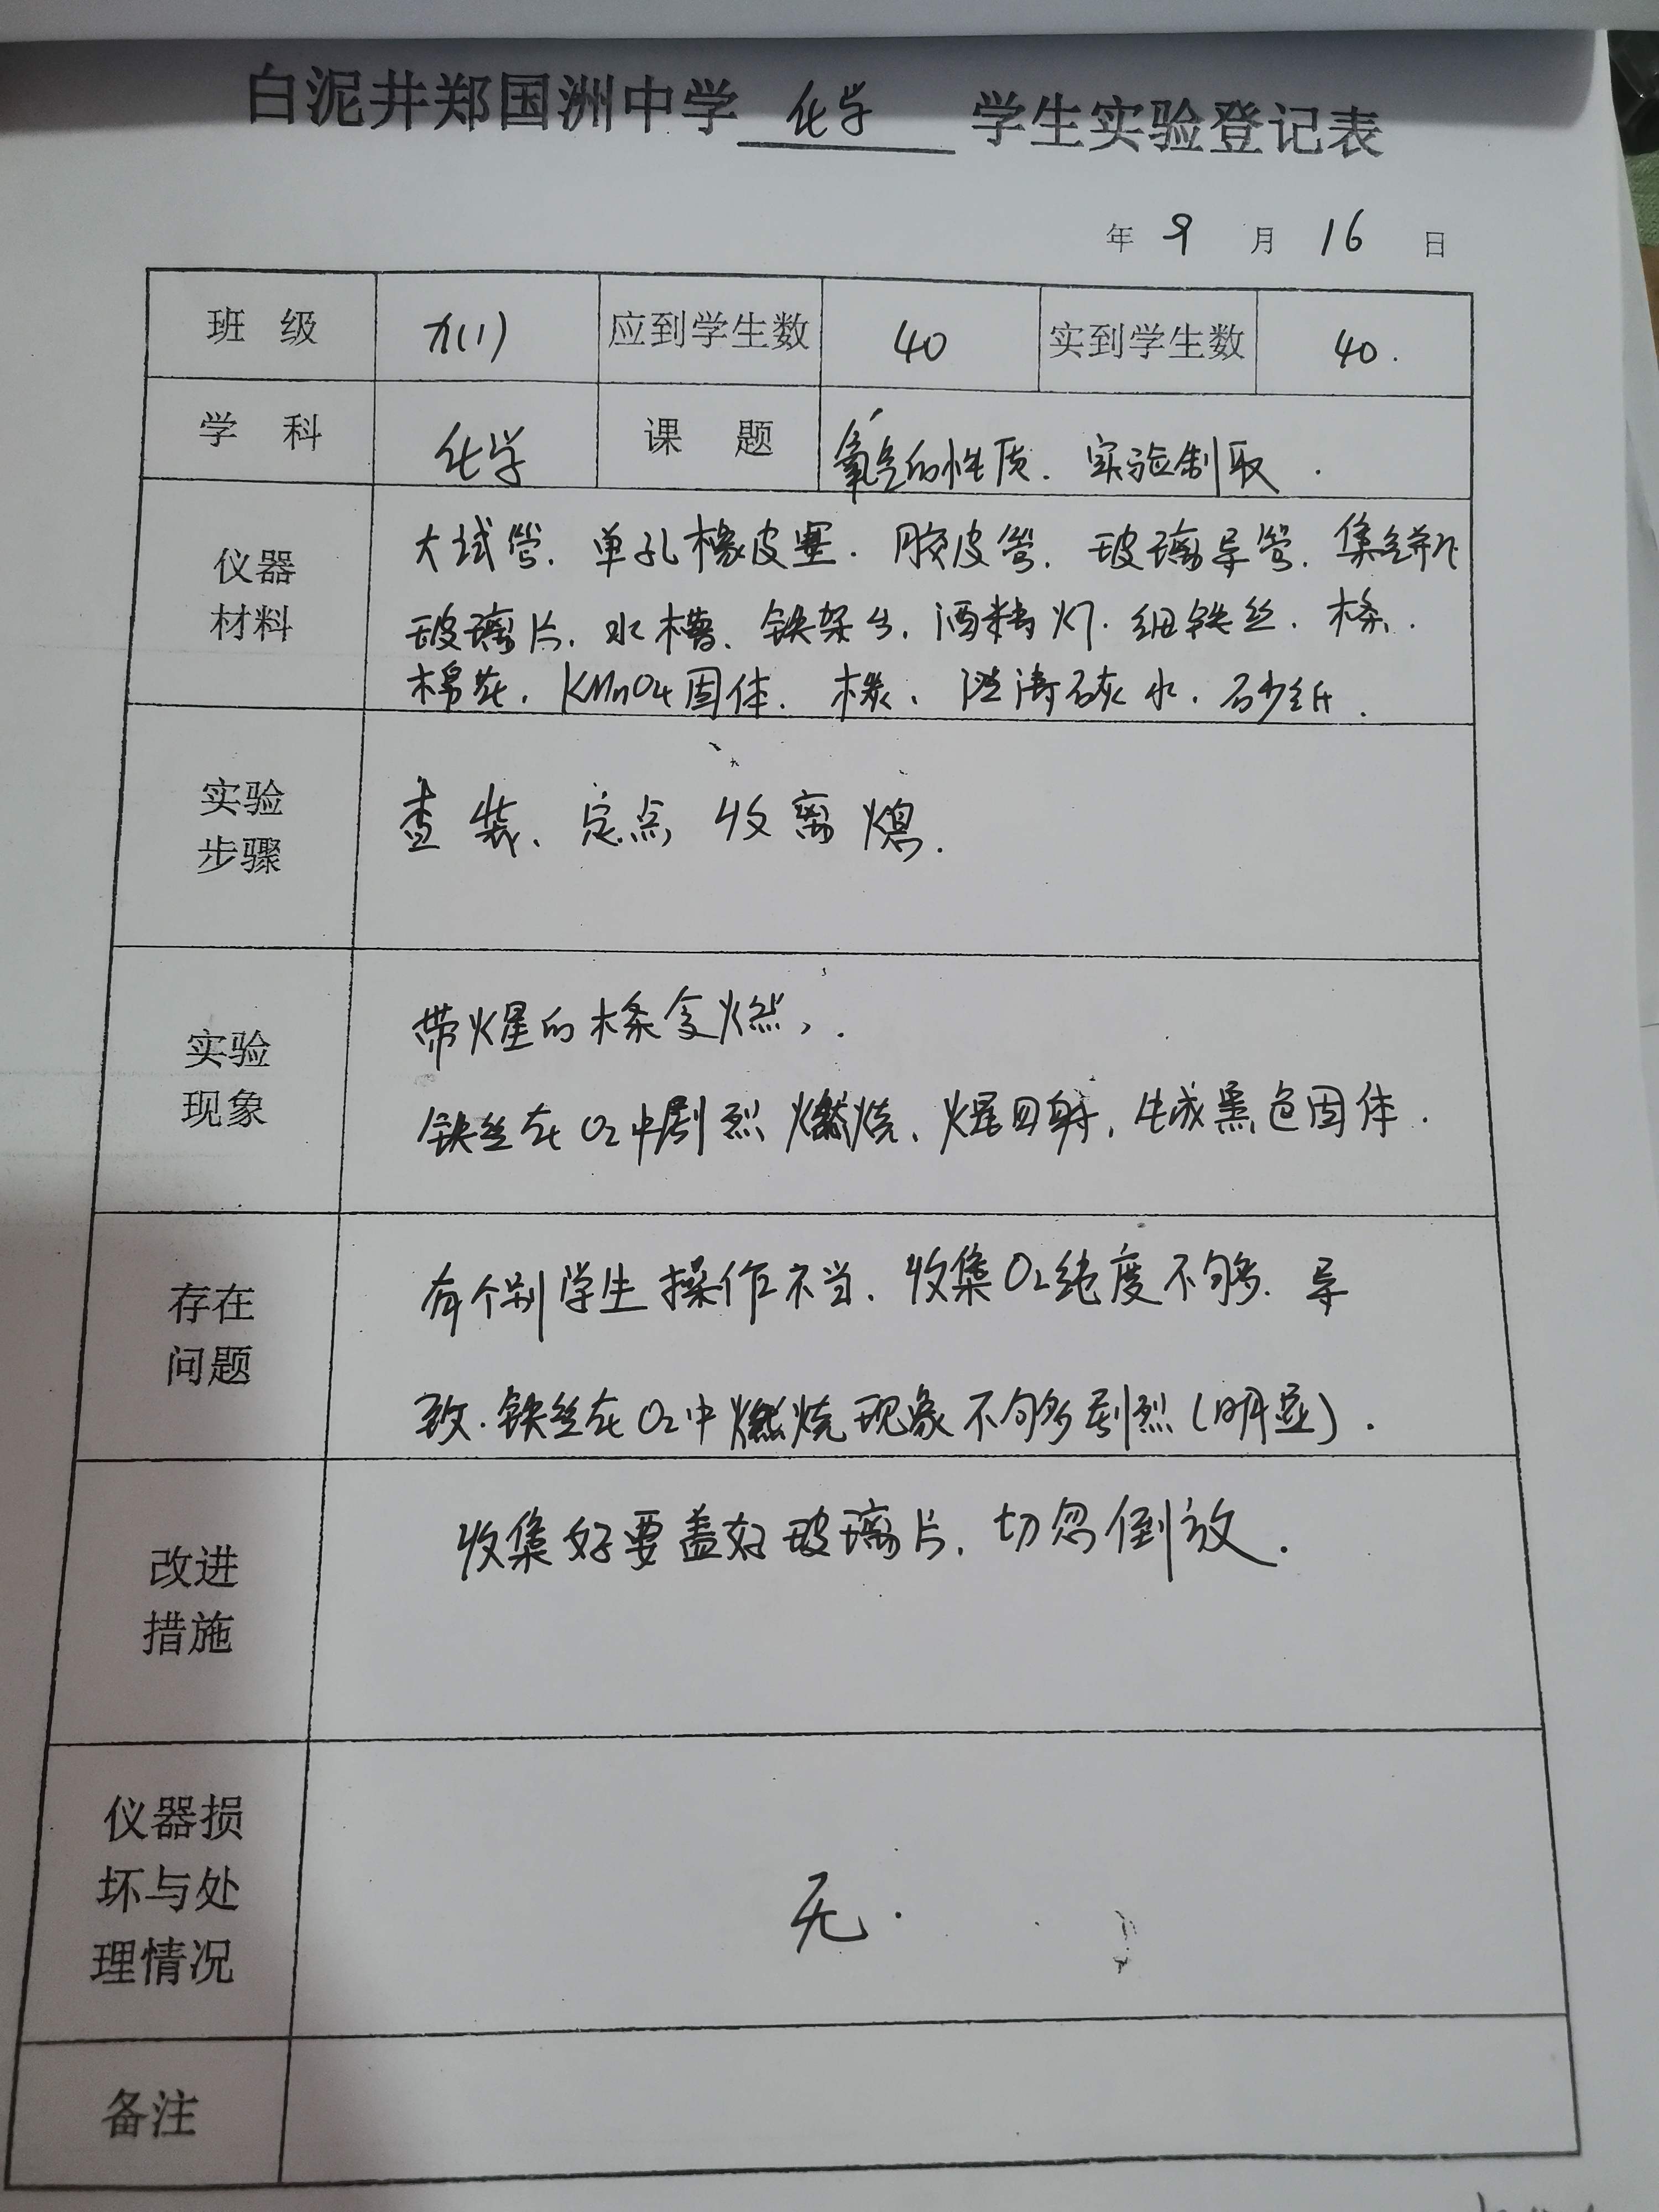 白泥井郑国洲中学 化学 学生实验登记表
年 9 月 16 日
班 级 九(1) 应到学生数 40 实到学生数 40.
学 科 化学 课 题 氧气的性质、实验制取.
仪器
材料
大试管、单孔橡皮塞、胶皮管、玻璃导管、集气瓶
玻璃片、水槽、铁架台、酒精灯、细铁丝、木条、
棉花、KMnO4固体、木炭、澄清石灰水、砂纸.
实验
步骤
查 装、定 点 收 离 熄.
实验
现象
带火星的木条复燃,.
铁丝在O2中剧烈燃烧、火星四射,生成黑色固体.
存在
问题
有个别学生操作不当、收集O2纯度不够、导
致.铁丝在O2中燃烧现象不够剧烈(明显).
改进
措施
收集好要盖好玻璃片,切忽倒放.
仪器损
坏与处
理情况
无.
备注